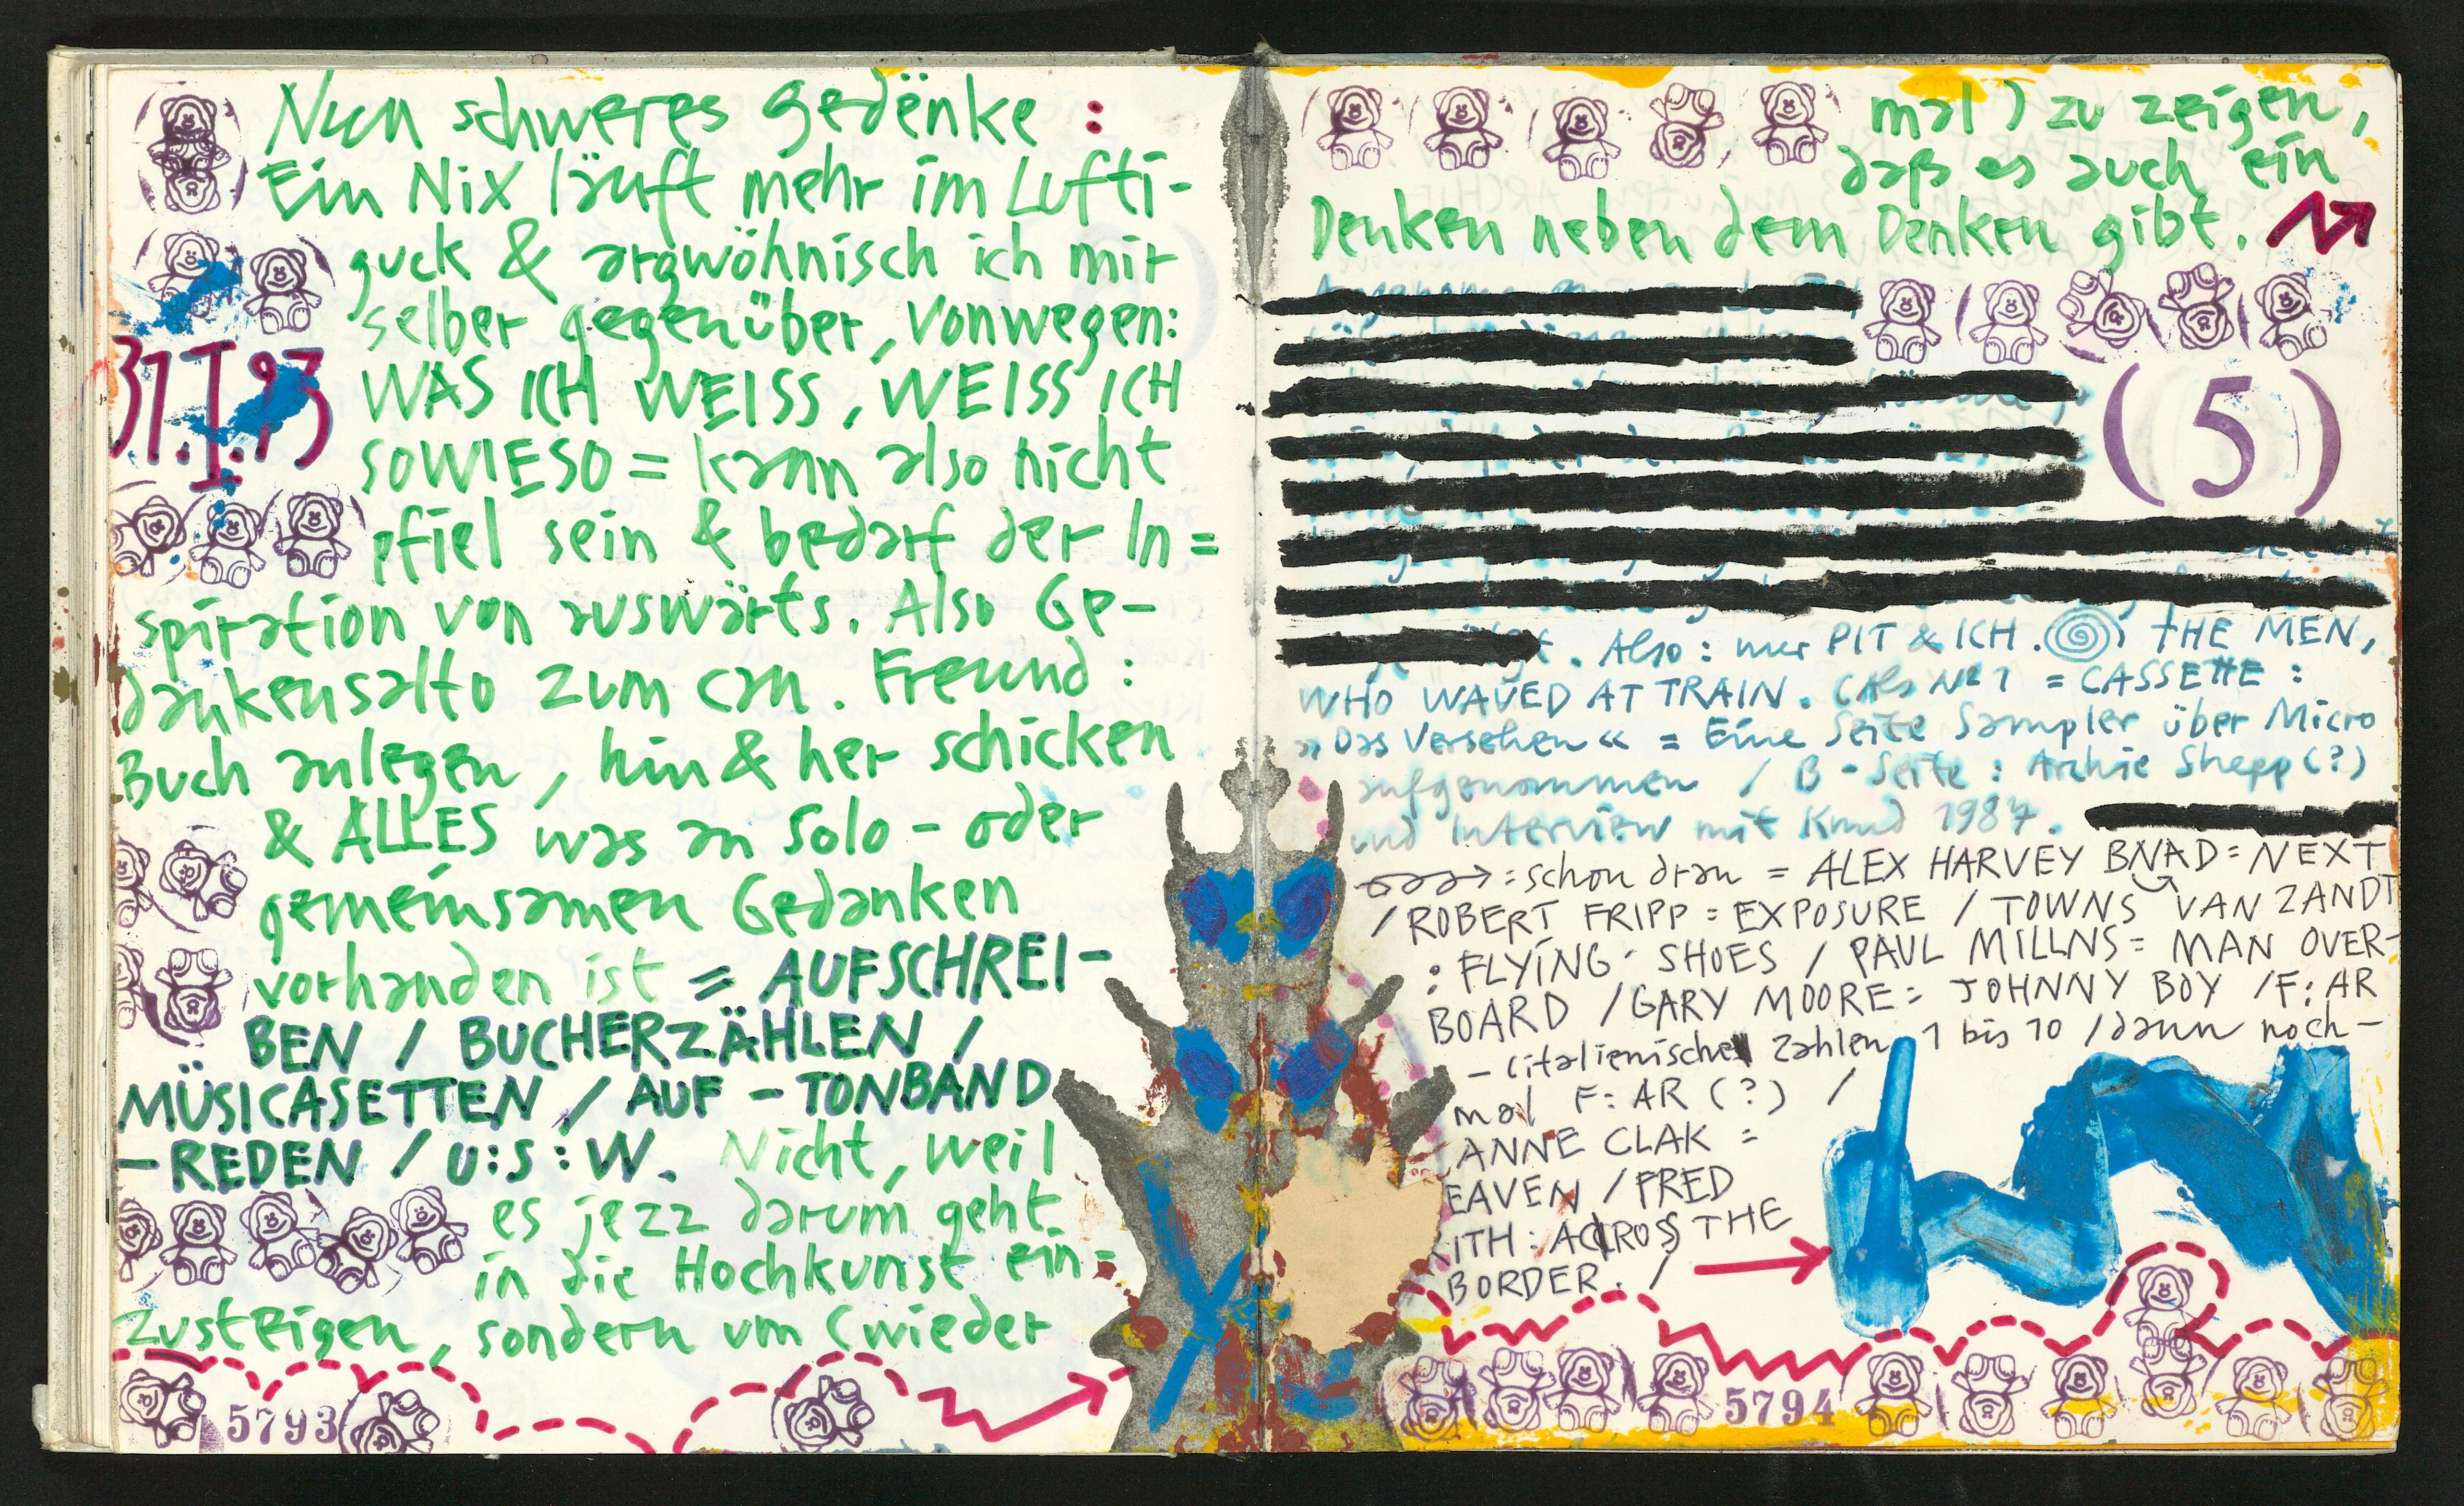 Nun schweres Gedënke :
Ein Nix läuft mehr im Lufti-
guck & argwöhnisch ich mir
selber gegenüber, Vonwegen:
31.I.93
WAS ICH WEISS, WEISS ICH
SOWIESO = kann also nicht
pfiel sein & bedarf der In=
spiration von auswärts. Also Ge-
dankensalto zum can. Freund :
Buch anlegen, hin & her schicken
& ALLES was an Solo- oder
gemeinsamen Gedanken
vorhanden ist = AUFSCHREI-
BEN / BUCHERZÄHLEN /
MÜSICASETTEN / AUF - TONBAND
-REDEN / U:S:W. Nicht, weil
es jezz darum geht
in die Hochkunst ein=
zusteigen, sondern um (wieder
5793
mal) zu zeigen,
daß es auch ein
Denken neben dem Denken gibt.
(5)
. Also: nur PIT & ICH. THE MEN,
WHO WAVED AT TRAIN. (Als № 1 = CASSETTE :
»Das Versehen« = Eine Seite Sampler über Micro
aufgenommen / B-Seite: Archie Shepp (?)
und Interview mit Knud 1987.
: schon dran = ALEX HARVEY BNAD = NEXT
/ ROBERT FRIPP = EXPOSURE / TOWNS VAN ZANDT
: FLYING SHOES / PAUL MILLNS = MAN OVER-
BOARD / GARY MOORE = JOHNNY BOY / F: AR
- (italienische Zahlen 1 bis 10 / dann noch-
mal F: AR (?) /
ANNE CLAK =
EAVEN / FRED
ITH : ACROSS THE
BORDER. /
5794